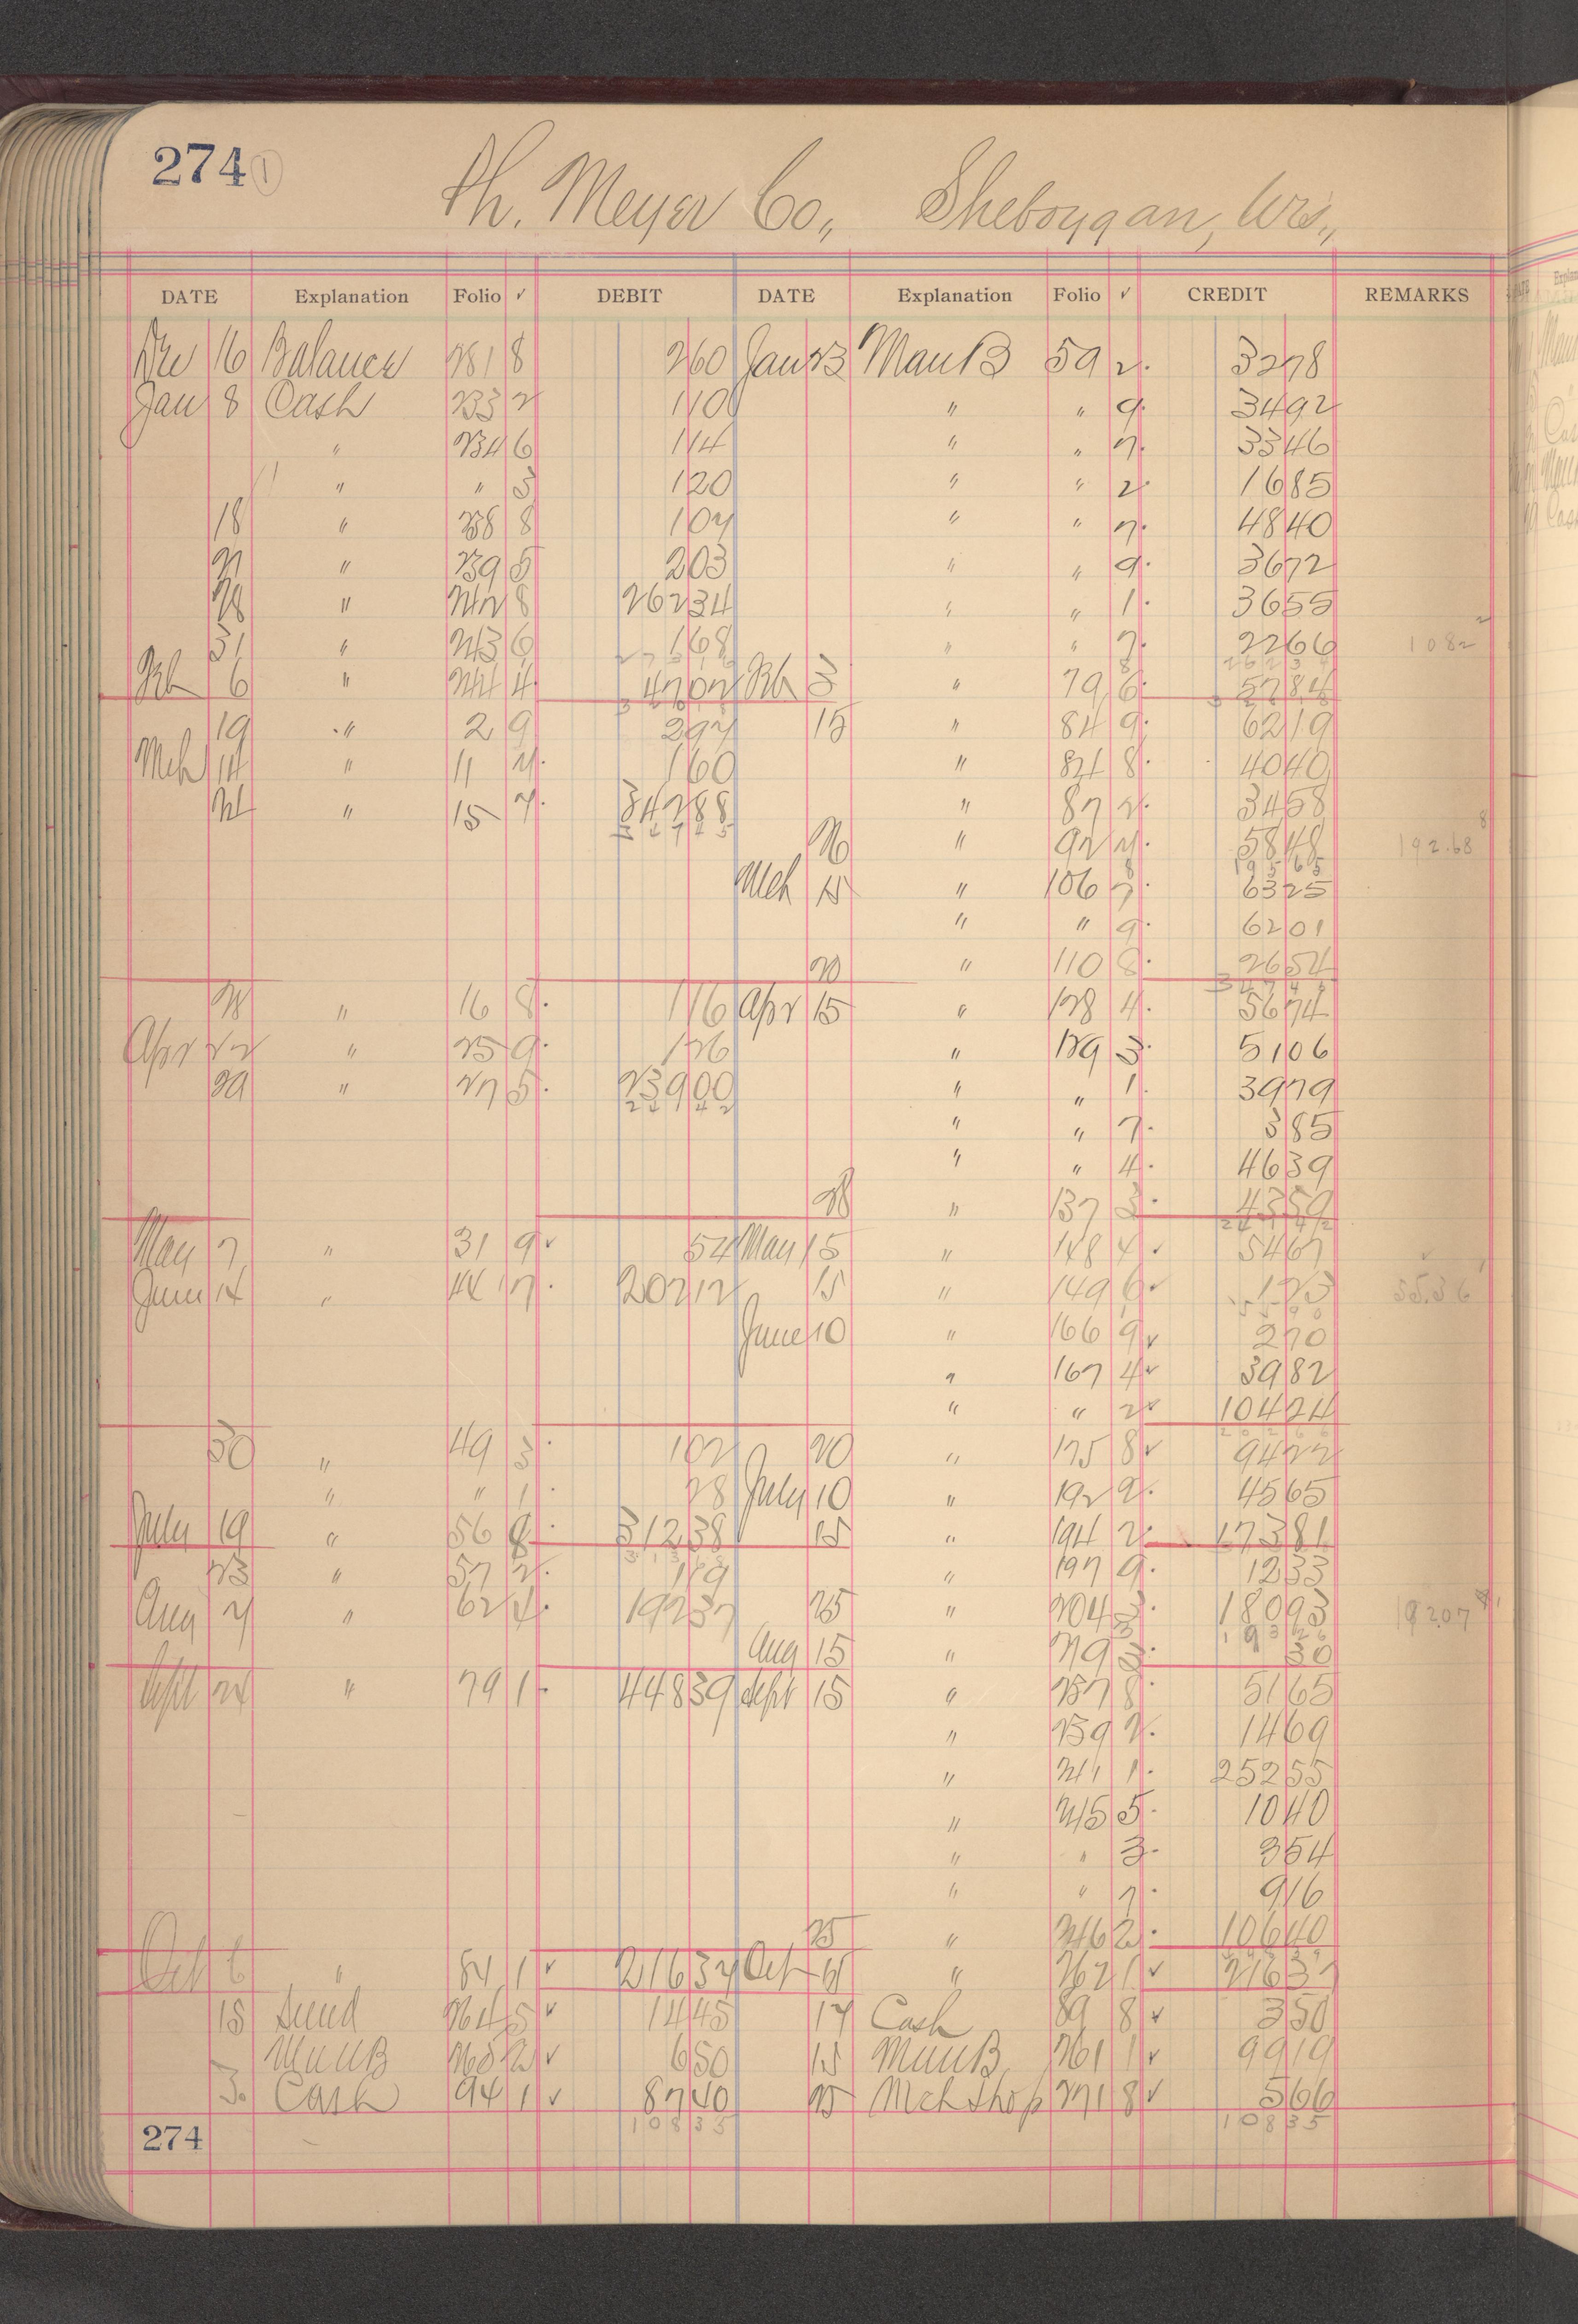 274 1
Ph. Meyer Co., Sheboygan, Wis.,
DATE Explanation Folio ✓ DEBIT DATE Explanation Folio ✓ CREDIT REMARKS
Dec 16 Balance 281 8 260 Jan 23 Man B 59 2. 3278
Jan 8 Cash 233 2 110 " " 9. 3492
" 234 6 114 " " 7. 3346
" " 3 120 " " 2. 1685
18 " 238 8 107 " " 7. 4840
21 " 239 5 203 " " 9. 3672
28 " 242 8 26234 " " 1. 3655
31 " 243 6 168 " " 7. 2266 1082
Feb 6 " 244 4 4702 Feb 3 " 79 6. 5784
19 " 2 9 297 15 " 84 9. 6219
Mch 14 " 11 7. 160 " 84 8. 4040
24 " 15 7. 34288 " 87 2. 3458
26 " 92 7. 5848 192.68
19565
Mch 15 " 106 7. 6325
" " 9. 6201
20 " 110 8. 2654
28 " 16 8. 116 Apr 15 " 128 4. 5674
Apr 22 " 25 9. 126 " 129 3. 5106
29 " 27 5. 23900 " " 1. 3979
" " 7. 385
" " 4. 4639
28 " 137 3. 4359
May 7 " 31 9 ✓ 54 May 15 " 148 4 ✓ 5467 ✓
June 14 " 44 7. 20212 15 " 149 6 ✓ 123 55.36
June 10 " 166 9 ✓ 270
" 167 4 ✓ 3982
" " 2 ✓ 10424
30 " 49 3. 102 20 " 175 8 ✓ 9422
" " 1. 28 July 10 " 192 9. 4565
July 19 " 56 8. 31238 15 " 194 2. 17381
23 " 57 2. 119 " 197 9. 1233
Aug 7 " 62 4. 19237 25 " 204 3. 18093 192.07
Aug 15 " 219 3. 30
Sept 24 " 79 1. 44839 Sept 15 " 237 8. 5165
" 239 2. 1469
" 241 1. 25255
" 245 5. 1040
" " 3. 354
" " 7. 916
25 " 246 2. 10640
Oct 6 " 84 1 ✓ 21637 Oct " 262 1 ✓ 21637
15 Sund 264 5 ✓ 1445 17 Cash 89 8 ✓ 350
Man B 2 ✓ 650 15 Man B 261 1 ✓ 9919
Cash 94 1 ✓ 8740 25 Mch Shop 271 8 ✓ 566
10835 10835
274